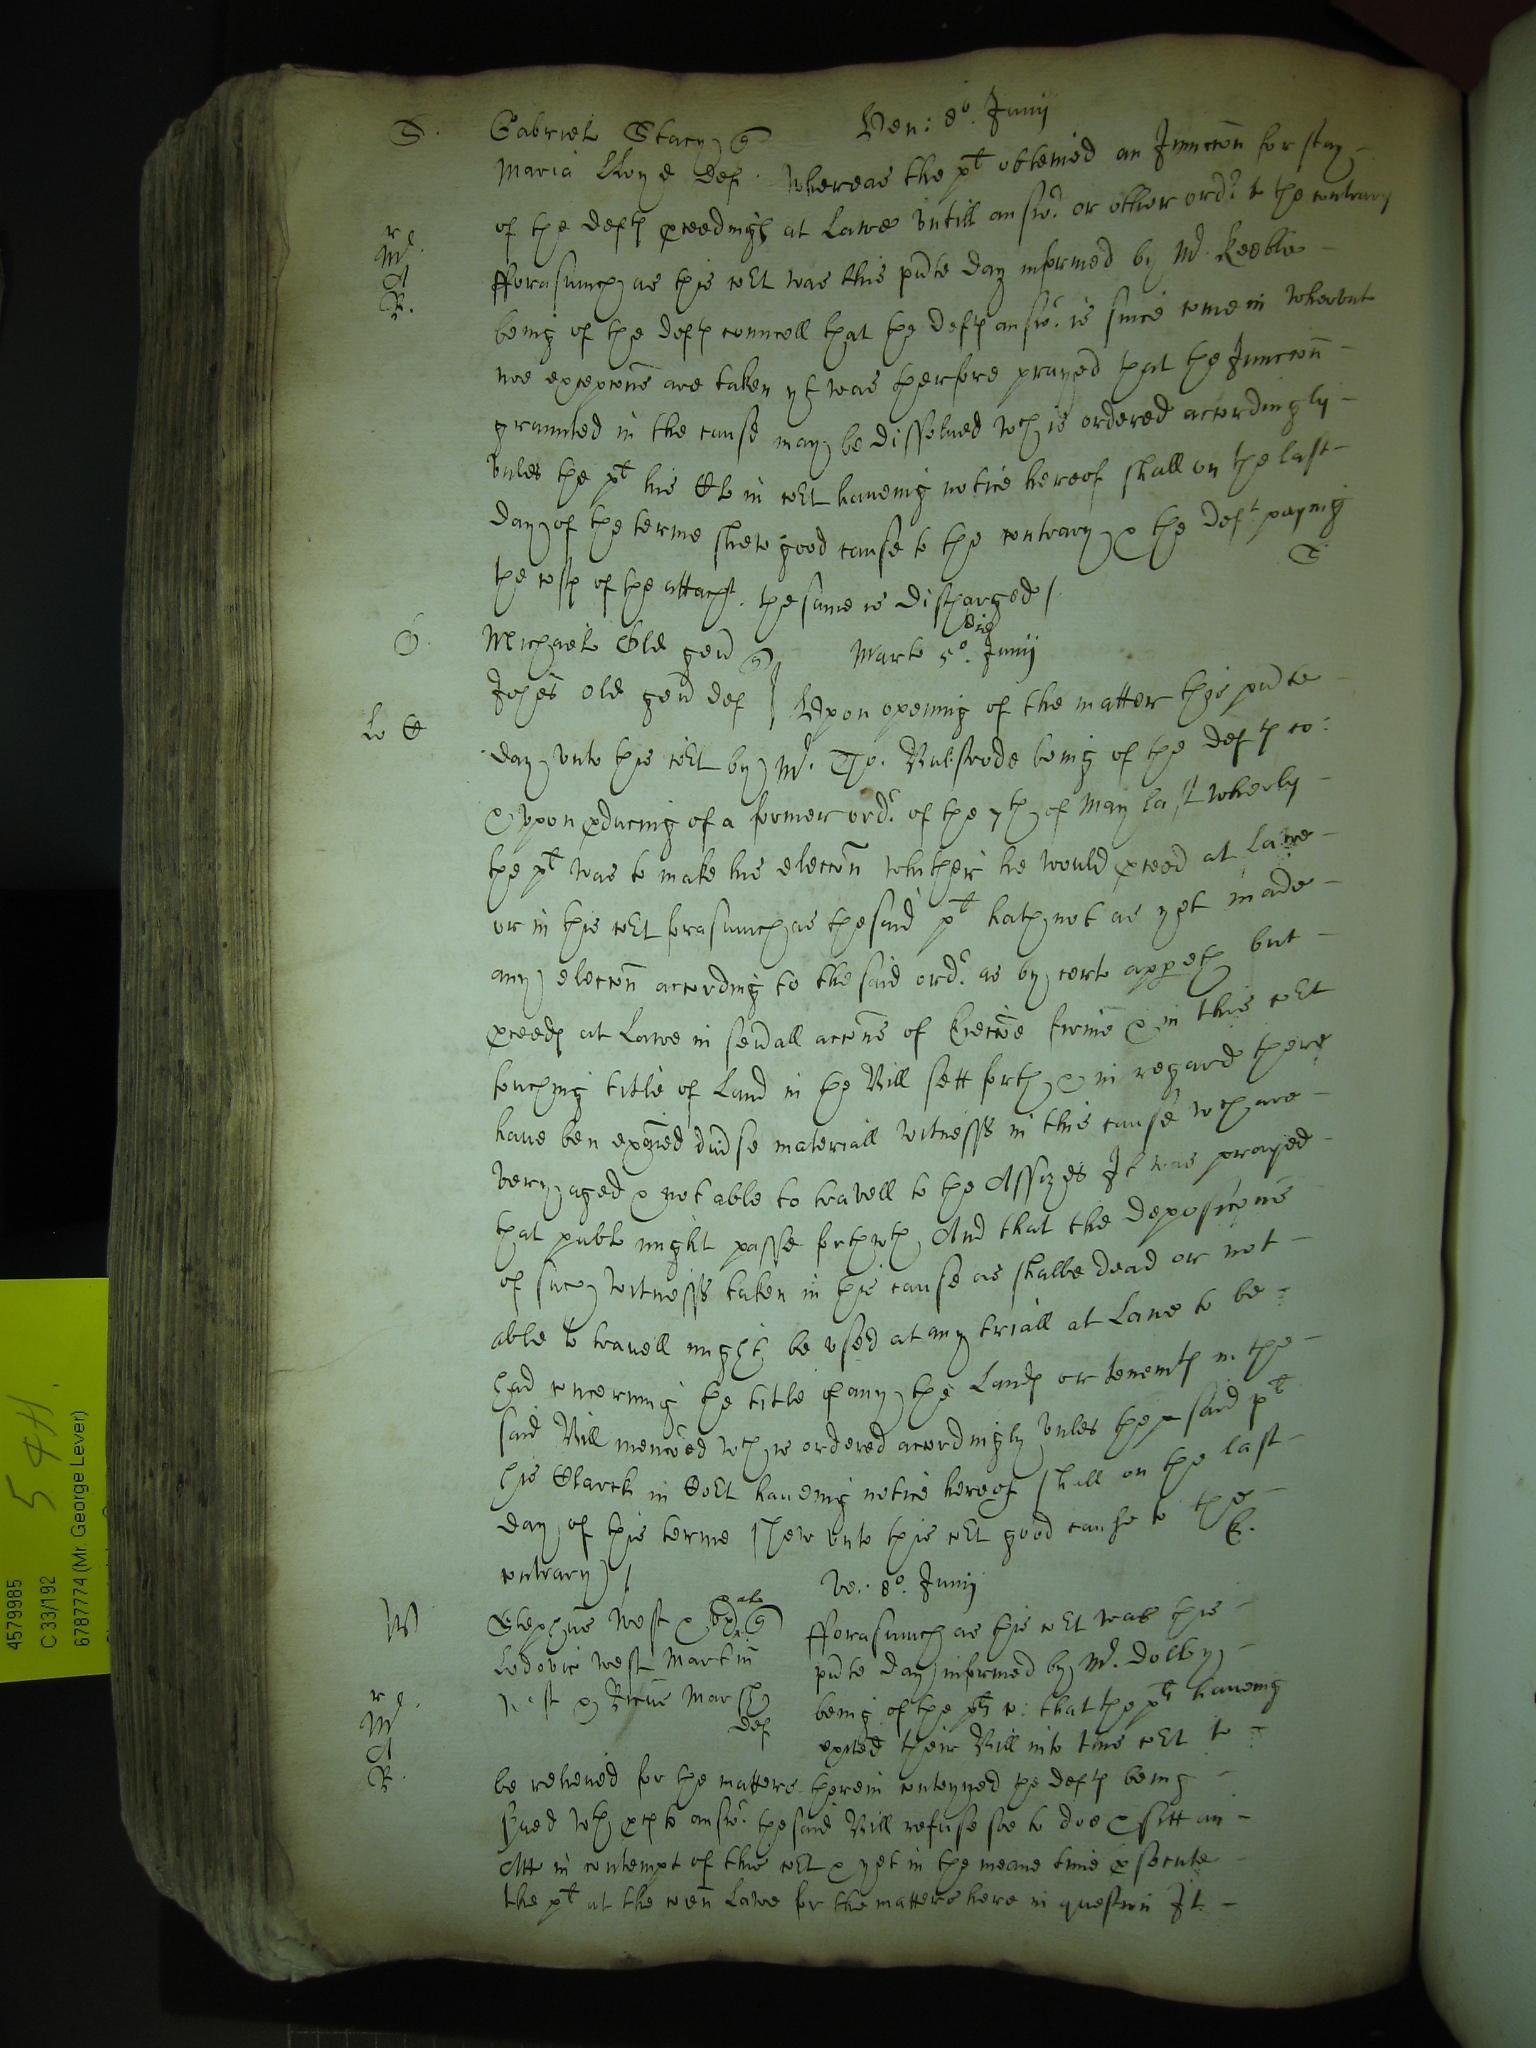 S. Gabriel Stacy q Ven: 8o. Junij
Maria Lloyd def. Whereas the plt obteined an Iniunccon for stay
of the defts pceedings at Lawe untill answr. or other ordr. to the contrary
rl.
Mr
A
R.
fforasmuch as this Cort was this pnte day informed by Mr. Keeble
being of the defts councell that the defts answr. is since come in wherunt
noe excepcons are taken yt was therfore prayed that the Iniunccon
graunted in the cause may be dissolued wch is ordered accordingly
unles the plt his Cl in Cort haueing notice hereof shall on the last
day of the terme shew good cause to the contrary & the deft paying
the costs of the attachmt. the same is discharged /
O. Michael Old gen q Marte die 5o. Junij
Johes Old gen def Upon opening of the matter this pnte
day unto this Cort by Mr. Tho. Bulstrode being of the defts co:
& upon pducing of a former ordr. of the 7th of May last wherby
the plt was to make his eleccon whither he would pceed at Lawe
or in this Cort forasmuch as the said plt hath not as yet made
any eleccon according to the said ordr. as by certe appeth but
pceeds at Lawe in seuall accons of Eieccoe firme & in this Cort
touching title of Land in the Bill sett forth & in regard there
have ben exaied diuse materiall witnesses in this cause wch are
very aged & not able to travell to the Assizes It was prayed
that publ might passe forthwth And that the deposicons
of such witnesses taken in this cause as shalbe dead or not
able to travell might be used at any triall at Lawe to be
had concerning the title of any the Lands or tenemts in the
said Bill mencoed wch is ordered accordingly unles the said plt
his Clarck in Cort haueing notice hereof shall on the last
day of this terme shew unto this Cort good cause to the
contrary /
W Ve. 8o. Junij
Stephus West & q fforasmuch as this Cort was this
Lodovic West Martin pnte day informed by Mr. Dolby
West & Ricus Marsh being of the plts co: that the plts haueing
def exhited their Bill into this Cort to
rl.
Mr
A
R.
be releiued for the matters therein conteyned the defts being
serued wth pces to answr. the said Bill refuse soe to doe & sitt an
Att in contempt of this Cort & yet in the meane time psecute
the plt at the coen Lawe for the matters here in question It
4579985
C 33/192
6787774 (Mr. George Lever)